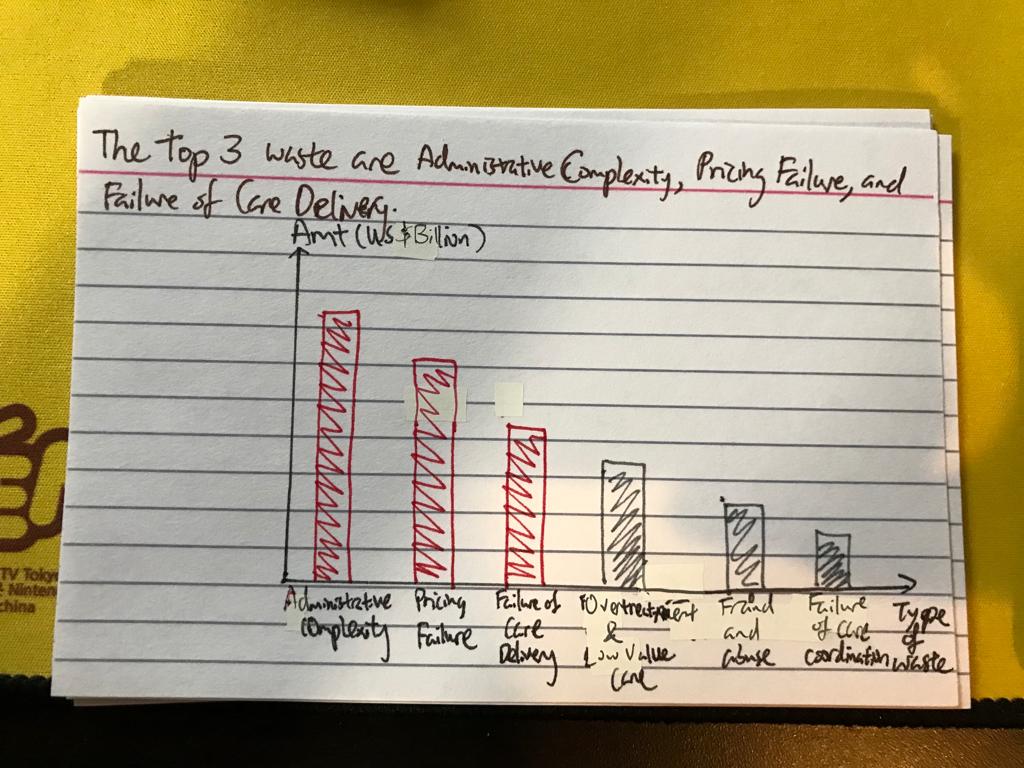 The top 3 waste are Administrative Complexity, Pricing Failure, and
Failure of Care Delivery.
Amt (US $Billion)
Administrative
complexity
Pricing
Failure
Failure of
Care
Delivery
Overtreatment
&
Low Value
Care
Fraud
and
abuse
Failure
of care
coordination
Type
of
waste
TV Tokyo
china